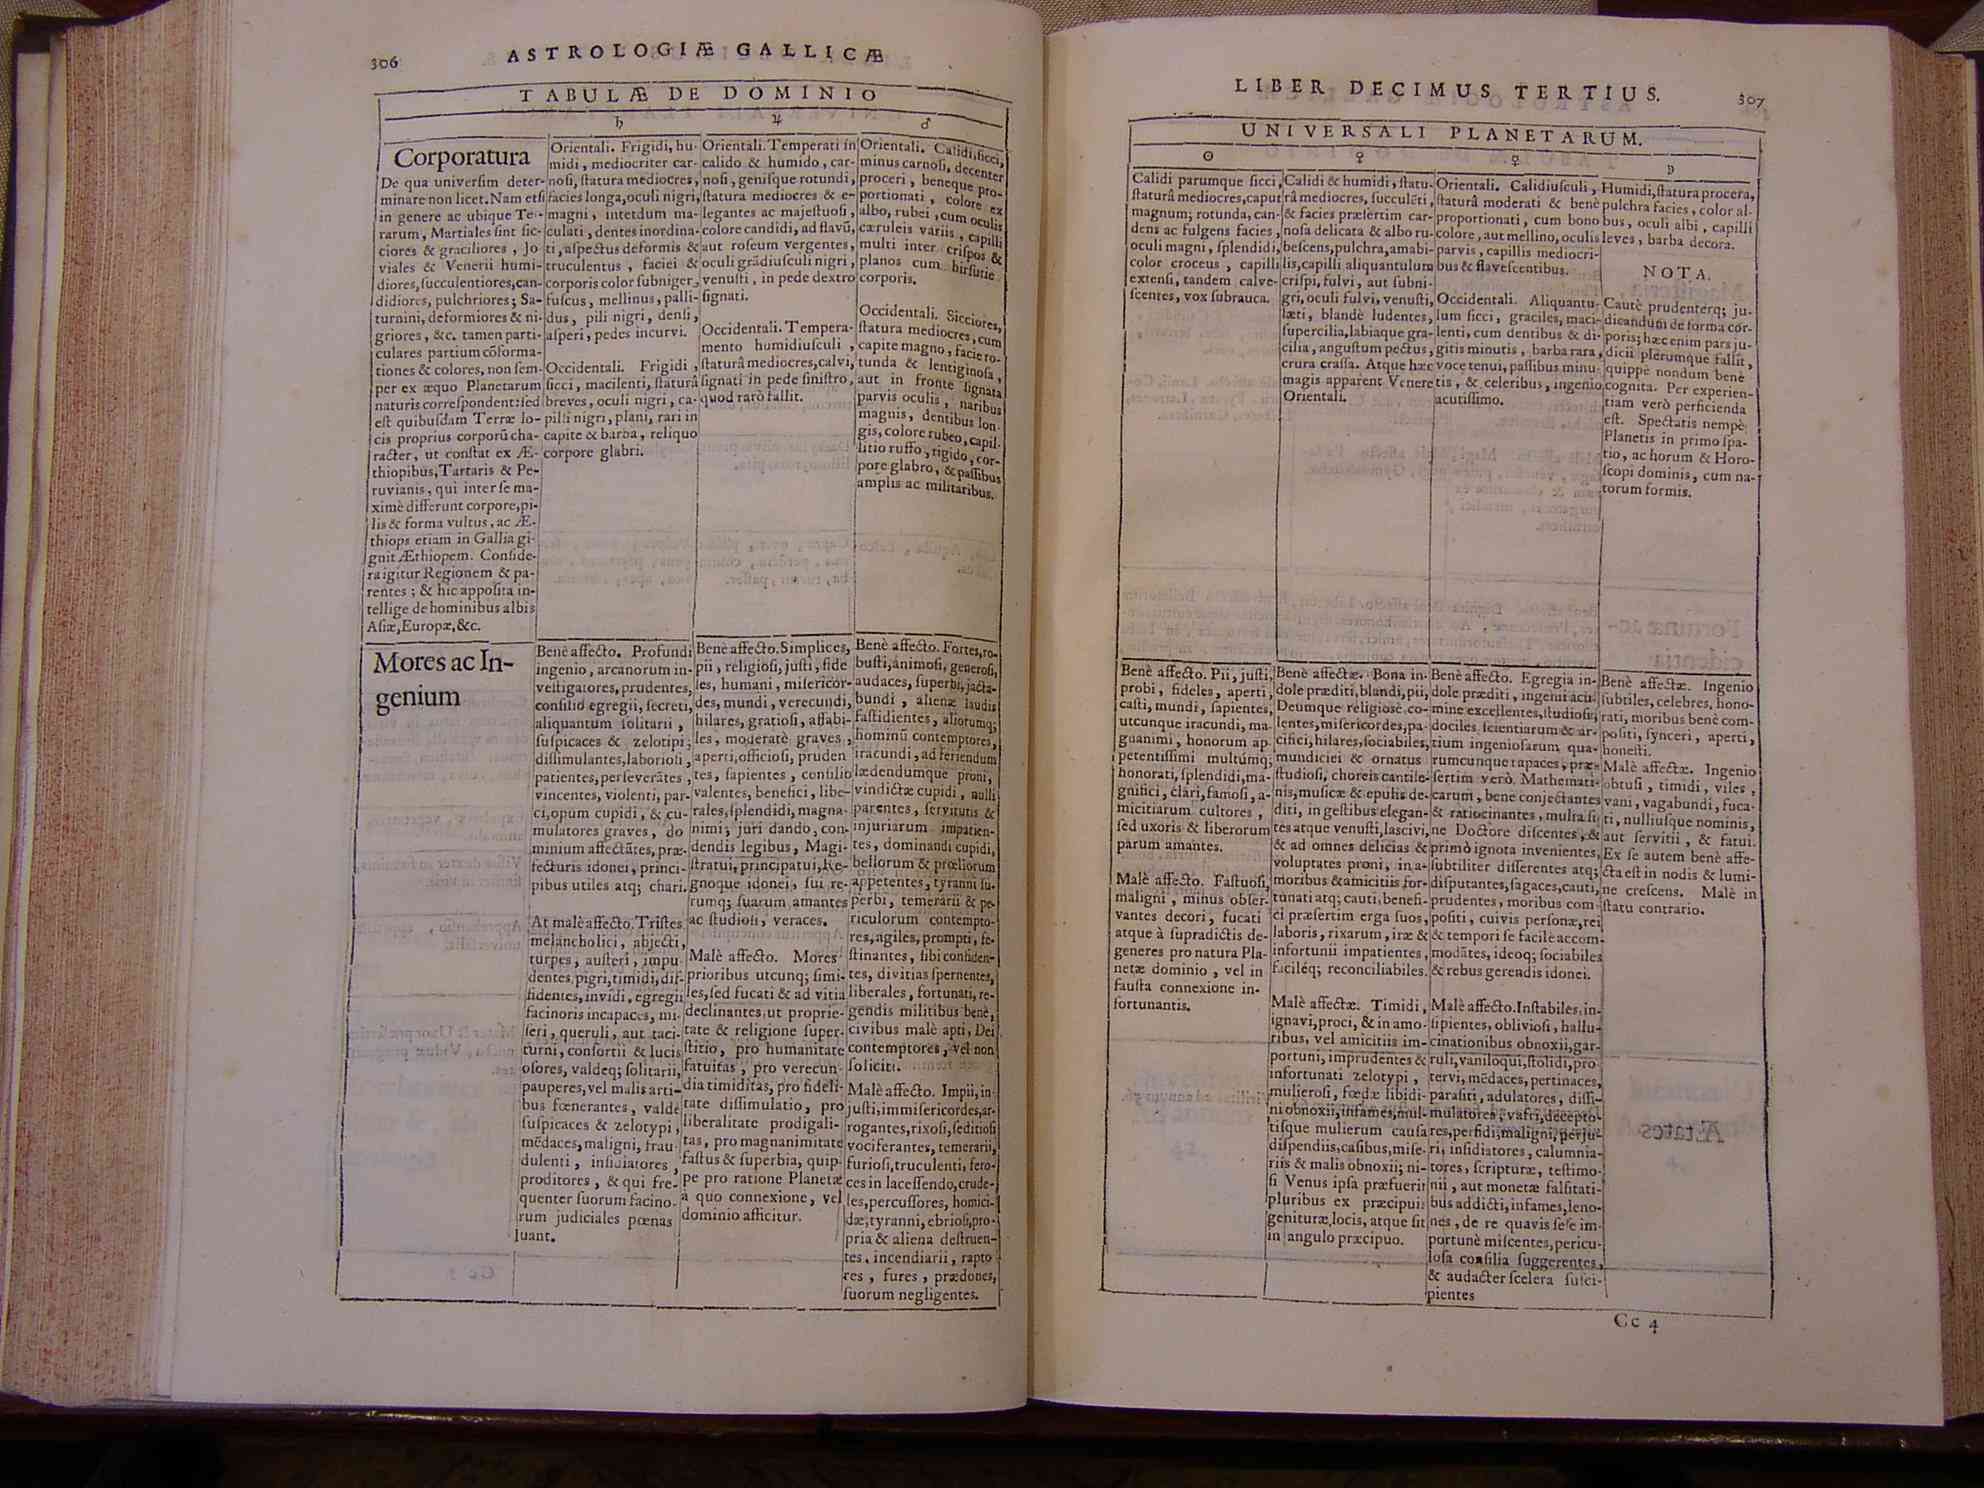 306
ASTROLOGIÆ GALLICÆ
TABULÆ DE DOMINIO
♄ ♃ ♂
Corporatura
De qua universim deter-
minare non licet. Nam etsi
in genere ac ubique Te-
rarum, Martiales sint sic-
ciores & graciliores, Jo
viales & Venerii humi-
diores, succulentiores, can-
didiores, pulchriores; Sa-
turnini, deformiores & ni-
griores, &c. tamen parti-
culares partium cõforma-
tiones & colores, non sem-
per ex æquo Planetarum
naturis correspondent: sed
est quibusdam Terræ lo-
cis proprius corporũ cha-
racter, ut constat ex Æ-
thiopibus, Tartaris & Pe-
ruvianis, qui inter se ma-
ximè differunt corpore, pi-
lis & forma vultus, ac Æ-
thiops etiam in Gallia gi-
gnit Æthiopem. Conside-
ra igitur Regionem & pa-
rentes; & hic apposita in-
tellige de hominibus albis
Asiæ, Europæ, &c.
Orientali. Frigidi, hu-
midi, mediocriter car-
nosi, statura mediocres,
facies longa, oculi nigri,
magni, interdum ma-
culati, dentes inordina-
ti, aspectus deformis &
truculentus, faciei &
corporis color subniger,
fuscus, mellinus, palli-
dus, pili nigri, densi,
asperi, pedes incurvi.
Occidentali. Frigidi,
sicci, macilenti, staturâ
breves, oculi nigri, ca-
pilli nigri, plani, rari in
capite & barba, reliquo
corpore glabri.
Orientali. Temperati in
calido & humido, car-
nosi, genisque rotundi,
statura mediocres & e-
legantes ac majestuosi,
colore candidi, ad flavũ,
aut roseum vergentes,
oculi grãdiusculi nigri,
venusti, in pede dextro
signati.
Occidentali. Tempera-
mento humidiusculi,
staturâ mediocres, calvi,
signati in pede sinistro,
quod rarò fallit.
Orientali. Calidi, sicci,
minus carnosi, decenter
proceri, beneque pro-
portionati, colore ex
albo, rubei, cum oculis
cæruleis variis, capilli
multi inter crispos &
planos cum hirsutie
corporis.
Occidentali. Sicciores,
statura mediocres, cum
capite magno, facie ro-
tunda & lentiginosa,
aut in fronte signata
parvis oculis, naribus
magnis, dentibus lon-
gis, colore rubeo, capil-
litio ruffo, rigido, cor-
pore glabro, & passibus
amplis ac militaribus.
Mores ac In-
genium
Benè affecto. Profundi
ingenio, arcanorum in-
vestigatores, prudentes,
consilio egregii, secreti,
aliquantum solitarii,
suspicaces & zelotipi,
dissimulantes, laboriosi,
patientes, perseverãtes,
vincentes, violenti, par-
ci, opum cupidi, & cu-
mulatores graves, do
minium affectãtes, præ-
fecturis idonei, princi-
pibus utiles atq; chari.
At malè affecto. Tristes
melancholici, abjecti,
turpes, austeri, impu
dentes, pigri, timidi, dif-
fidentes, invidi, egregii
facinoris incapaces, mi-
seri, queruli, aut taci-
turni, consortii & lucis
osores, valdeq; solitarii,
pauperes, vel malis arti-
bus fœnerantes, valde
suspicaces & zelotypi,
mẽdaces, maligni, frau
dulenti, insidiatores,
proditores, & qui fre-
quenter suorum facino-
rum judiciales pœnas
luant.
Benè affecto. Simplices,
pii, religiosi, justi, fide
les, humani, misericor-
des, mundi, verecundi,
hilares, gratiosi, affabi-
les, moderatè graves,
aperti, officiosi, pruden
tes, sapientes, consilio
valentes, benefici, libe-
rales, splendidi, magna-
nimi, juri dando, con-
dendis legibus, Magi-
stratui, principatui, Re-
gnoque idonei, sui re-
rumq; suarum amantes
ac studiosi, veraces.
Malè affecto. Mores
prioribus utcunq; simi-
les, sed fucati & ad vitia
declinantes, ut proprie-
tate & religione super-
stitio, pro humanitate
fatuitas, pro verecun-
dia timiditas, pro fideli-
tate dissimulatio, pro
liberalitate prodigali-
tas, pro magnanimitate
fastus & superbia, quip-
pe pro ratione Planetæ
à quo connexione, vel
dominio afficitur.
Benè affecto. Fortes, ro-
busti, animosi, generosi,
audaces, superbi, jacta-
bundi, alienæ laudis
fastidientes, aliorumq;
hominũ contemptores,
iracundi, ad feriendum
lædendumque proni,
vindictæ cupidi, nulli
parentes, servitutis &
injuriarum impatien-
tes, dominandi cupidi,
bellorum & prœliorum
appetentes, tyranni su-
perbi, temerarii & pe-
riculorum contempto-
res, agiles, prompti, fe-
stinantes, sibi confiden-
tes, divitias spernentes,
liberales, fortunati, re-
gendis militibus benè,
civibus malè apti, Dei
contemptores, vel non
soliciti.
Malè affecto. Impii, in
justi, immisericordes, ar-
rogantes, rixosi, seditiosi
vociferantes, temerarii,
furiosi, truculenti, fero-
ces in lacessendo, crude-
les, percussores, homici-
dæ, tyranni, ebriosi, pro-
pria & aliena destruen-
tes, incendiarii, rapto
res, fures, prædones,
suorum negligentes.
LIBER DECIMUS TERTIUS.
307
UNIVERSALI PLANETARUM.
☉ ♀ ☿ ☽
Calidi parumque sicci,
staturâ mediocres, caput
magnum; rotunda, can-
dens ac fulgens facies,
oculi magni, splendidi,
color croceus, capilli
extensi, tandem calve-
scentes, vox subrauca.
Calidi & humidi, statu-
râ mediocres, succulẽti,
& facies præsertim car-
nosa delicata & albo ru-
bescens, pulchra, amabi-
lis, capilli aliquantulum
crispi, fulvi, aut subni-
gri, oculi fulvi, venusti,
læti, blandè ludentes,
supercilia, labiaque gra-
cilia, angustum pectus,
crura crassa. Atque hæc
magis apparent Venere
Orientali.
Orientali. Calidiusculi,
staturâ moderati & benè
proportionati, cum bono
colore, aut mellino, oculis
parvis, capillis mediocri-
bus & flavescentibus.
Occidentali. Aliquantu-
lum sicci, graciles, maci-
lenti, cum dentibus & di-
gitis minutis, barba rara,
voce tenui, passibus minu-
tis, & celeribus, ingenio
acutissimo.
Humidi, statura procera,
pulchra facies, color al-
bus, oculi albi, capilli
leves, barba decora.
NOTA.
Cautè prudenterq; ju-
dicandum de forma cor-
poris; hæc enim pars ju-
dicii plerumque fallit,
quippe nondum benè
cognita. Per experien-
tiam verò perficienda
est. Spectatis nempè
Planetis in primo spa-
tio, ac horum & Horo-
scopi dominis, cum na-
torum formis.
Benè affecto. Pii, justi,
probi, fideles, aperti,
casti, mundi, sapientes,
utcunque iracundi, ma-
gnanimi, honorum ap-
petentissimi multùmq;
honorati, splendidi, ma-
gnifici, clari, famosi, a-
micitiarum cultores,
sed uxoris & liberorum
parum amantes.
Malè affecto. Fastuosi,
maligni, minus obser-
vantes decori, fucati
atque à supradictis de-
generes pro natura Pla-
netæ dominio, vel in
fausta connexione in-
fortunantis.
Benè affectæ. Bona in-
dole præditi, blandi, pii,
Deumque religiosè co-
lentes, misericordes, pa-
cifici, hilares, sociabiles,
mundiciei & ornatus
studiosi, choreis cantile-
nis, musicæ & epulis de-
diti, in gestibus elegan-
tes atque venusti, lascivi,
& ad omnes delicias &
voluptates proni, in a-
moribus & amicitiis for-
tunati atq; cauti, benefi-
ci præsertim erga suos,
laboris, rixarum, iræ &
infortunii impatientes,
facilèq; reconciliabiles.
Malè affectæ. Timidi,
ignavi, proci, & in amo-
ribus, vel amicitiis im-
portuni, imprudentes &
infortunati zelotypi,
mulierosi, fœdæ libidi-
ni obnoxii, infames, mul-
tisque mulierum causa
dispendiis, casibus, mise-
riis & malis obnoxii; ni-
si Venus ipsa præfuerit
pluribus ex præcipuis
genituræ, locis, atque sit
in angulo præcipuo.
Benè affecto. Egregia in-
dole præditi, ingenii acu-
mine excellentes, studiosi,
dociles, scientiarum & ar-
tium ingeniosarum qua-
rumcunque capaces, præ-
sertim verò Mathemati-
carum, benè conjectantes
& ratiocinantes, multa si-
ne Doctore discentes, &
primò ignota invenientes,
subtiliter disserentes atq;
disputantes, sagaces, cauti,
prudentes, moribus com-
positi, cuivis personæ, rei
& tempori se facilè accom-
modãtes, ideoq; sociabiles
& rebus gerendis idonei.
Malè affecto. Instabiles, in-
sipientes, obliviosi, hallu-
cinationibus obnoxii, gar-
ruli, vaniloqui, stolidi, pro
tervi, mẽdaces, pertinaces,
parasiti, adulatores, dissi-
mulatores, vafri, decepto-
res, perfidi, maligni, perju-
ri, insidiatores, calumnia-
tores, scripturæ, testimo-
nii, aut monetæ falsitati-
bus addicti, infames, leno-
nes, de re quavis sese im-
portunè miscentes, pericu-
losa consilia suggerentes,
& audacter scelera susci-
pientes
Benè affectæ. Ingenio
subtiles, celebres, hono-
rati, moribus benè com-
positi, synceri, aperti,
honesti.
Malè affectæ. Ingenio
obtusi, timidi, viles,
vani, vagabundi, fuca-
ti, nulliusque nominis,
aut servitii, & fatui.
Ex se autem benè affe-
cta est in nodis & lumi-
ne crescens. Malè in
statu contrario.
Cc 4